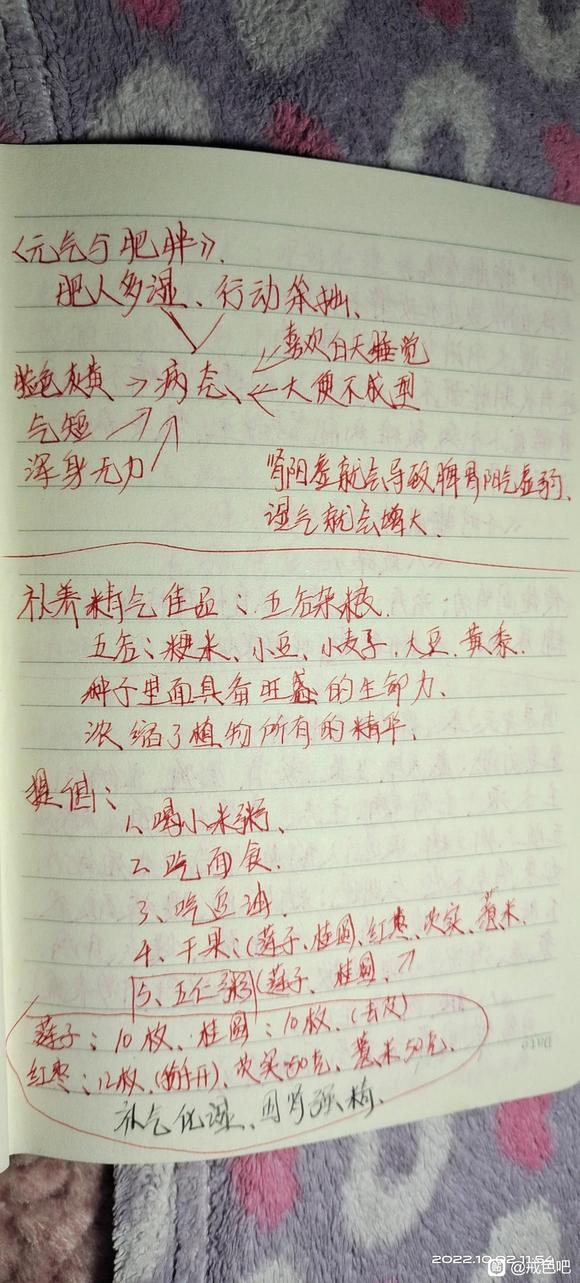 《元气与肥胖》.
肥人多湿、行动笨拙、
喜欢白天睡觉
脸色灰黄→病态、←大便不成型
气短
浑身无力
肾阳虚就会导致脾肾阳气虚弱,
湿气就会增大.
补养精气佳品:五谷杂粮.
五谷:粳米、小豆、小麦子、大豆、黄黍.
种子里面具备旺盛的生命力.
浓缩了植物所有的精华.
提倡:
1、喝小米粥、
2、吃面食.
3、吃豆油.
4、干果:(莲子、桂圆、红枣、芡实、薏米、
5、五仁粥(莲子、桂圆、↗
莲子:10枚、桂圆:10枚、(去皮)
红枣:12枚、(掰开)、芡实50克、薏米50克、
补气优湿、固肾强精.
2022.10.02 11:54
@戒色吧